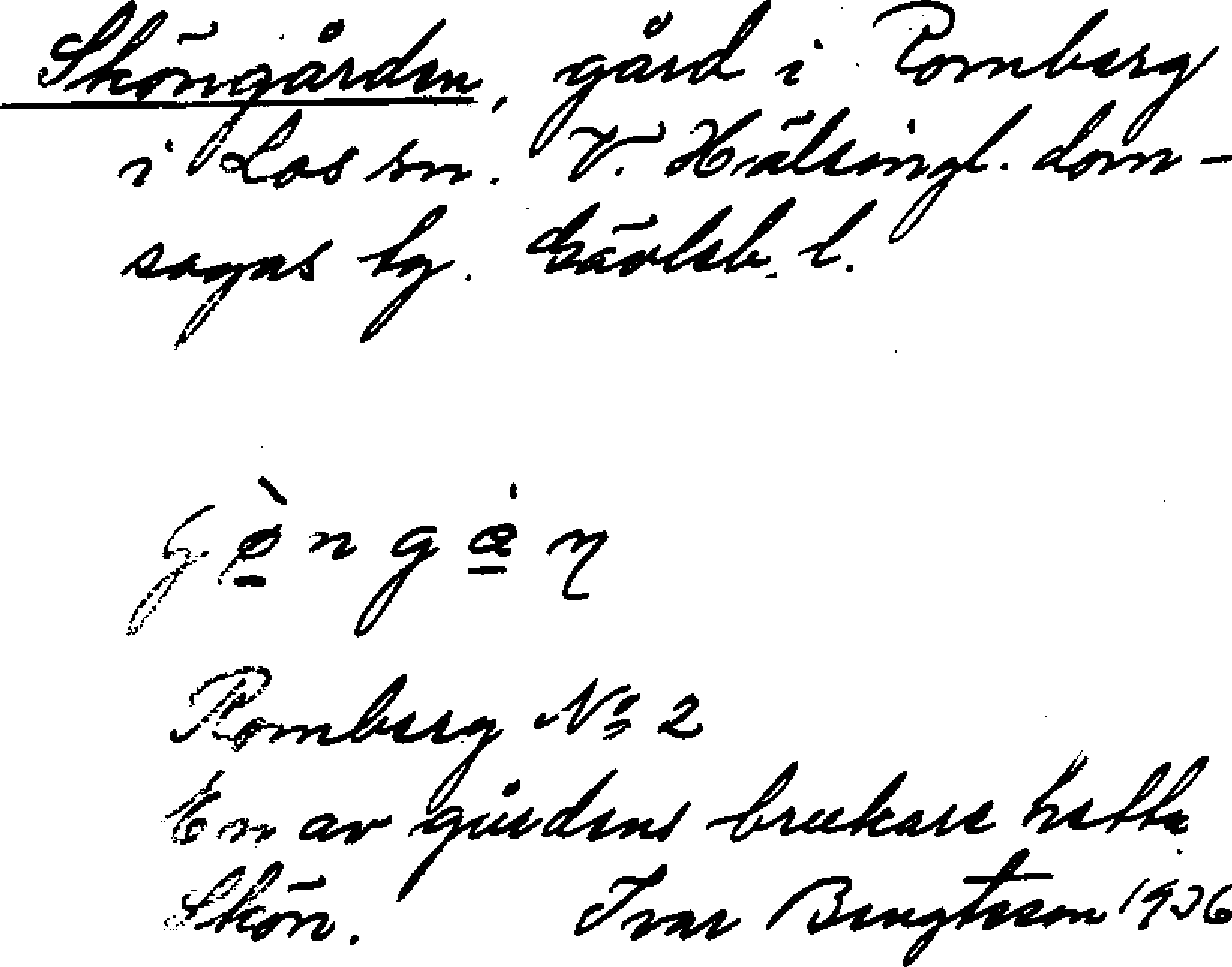 Sköngården, gård i Romberg
i Los sn. V. Hälsingl. dom-
sagas tg. Gävleb. l.
Romberg No 2
En av gårdens brukare hette
Skön. Ivar Bengtsson 1936